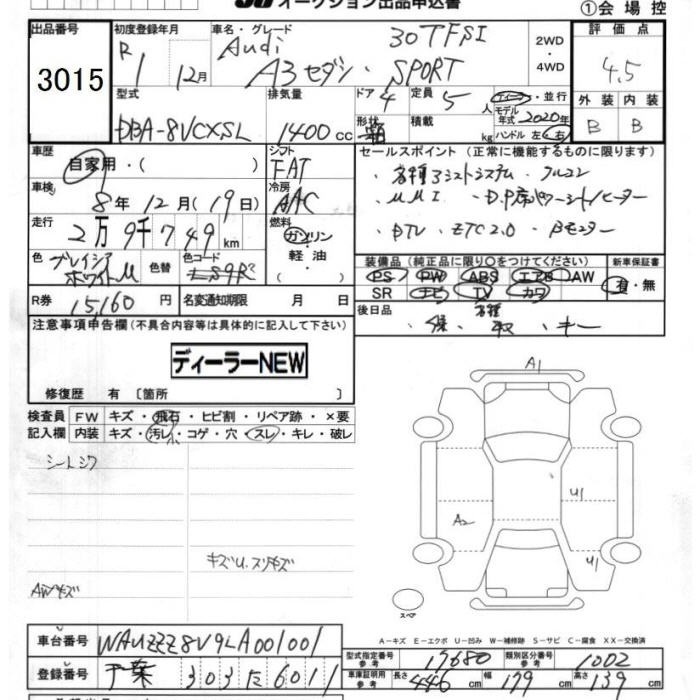 オークション出品申込書
①会場控
出品番号
3015
初度登録年月
R 1 12月
車名・グレード
Audi 30TFSI
A3セダン・SPORT
2WD
4WD
評価点
4.5
外装 内装
B B
型式
DBA-8VCXSL
排気量
1400cc
ドア 4
形状
定員 5人
積載 kg
ディーラー・並行
モデル年式 2020年
ハンドル 左・右
車歴
自家用・( )
シフト
FAT
セールスポイント(正常に機能するものに限ります)
・各種アシストシステム・クルコン
・MMI ・D.P席パワーシート/ヒーター
・DTV ・ETC2.0 ・Bモニター
車検
8年12月(19日)
冷房
AAC
走行
2万9千749km
燃料
ガソリン・
軽油・
( )
色
グレイシア
ホワイトM
色替
色コード
S9R
装備品(純正品に限り〇をつけてください)
PS PW ABS エアB AW
SR ナビ TV カワ
新車保証書
有・無
R券
15,160円
名変通知期限 月 日
後日品
・保 ・各種取 ・キー
注意事項申告欄(不具合内容等は具体的に記入して下さい)
ディーラーNEW
修復歴 有〔箇所 〕
検査員 FW キズ・飛石・ヒビ割・リペア跡・×要
記入欄 内装 キズ・汚レ・コゲ・穴・スレ・キレ・破レ
シートシワ
キズU.スリキズ
AWキズ
A1
U1
A2
U1
スペア
A-キズ E-エクボ U-凹み W-補修跡 S-サビ C-腐食 XX-交換済
車台番号
WAUZZZ8V9LA001001
登録番号
千葉 303 た 6011
型式指定番号 参考 19680
類別区分番号 参考 1002
車庫証明用 参考 長さ 446cm 幅 179cm 高さ 139cm